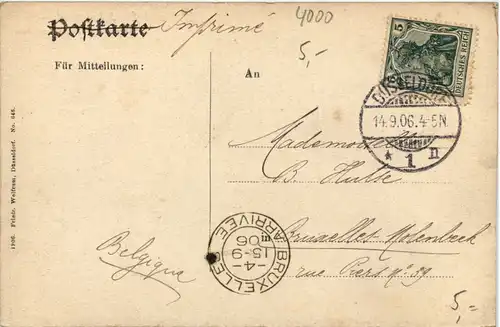 Postkarte Imprimé
4000
5,-
5
DEUTSCHES REICH
Für Mitteilungen:
An
DÜSSELDORF
14.9.06.4-5N.
* 1 n
Mademoiselle
B. Hulse
Bruxelles Molenbeek
rue Piers n° 39
Belgique
BRUXELLES
ARRIVÉE
-4-
15-9
06
1906. Friedr. Wolfrum, Düsseldorf. No.
5,-